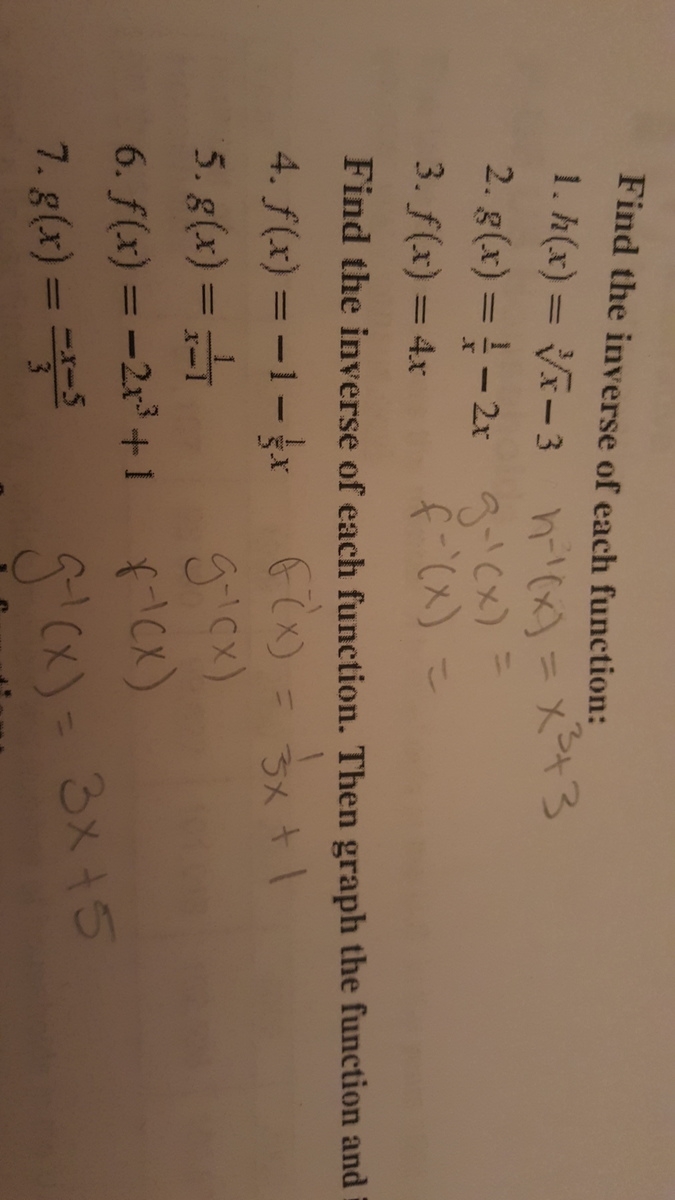 Find the inverse of each function:
1. h(x) = ∛x − 3 h⁻¹(x) = x³+3
2. g(x) = 1/x − 2x g⁻¹(x) =
3. f(x) = 4x f⁻¹(x) =
Find the inverse of each function. Then graph the function and
4. f(x) = −1 − 1/5 x f⁻¹(x) = 1/5x + 1
5. g(x) = 1/(x−1) g⁻¹(x)
6. f(x) = −2x³ + 1 f⁻¹(x)
7. g(x) = (−x−5)/3 g⁻¹(x) = 3x +5